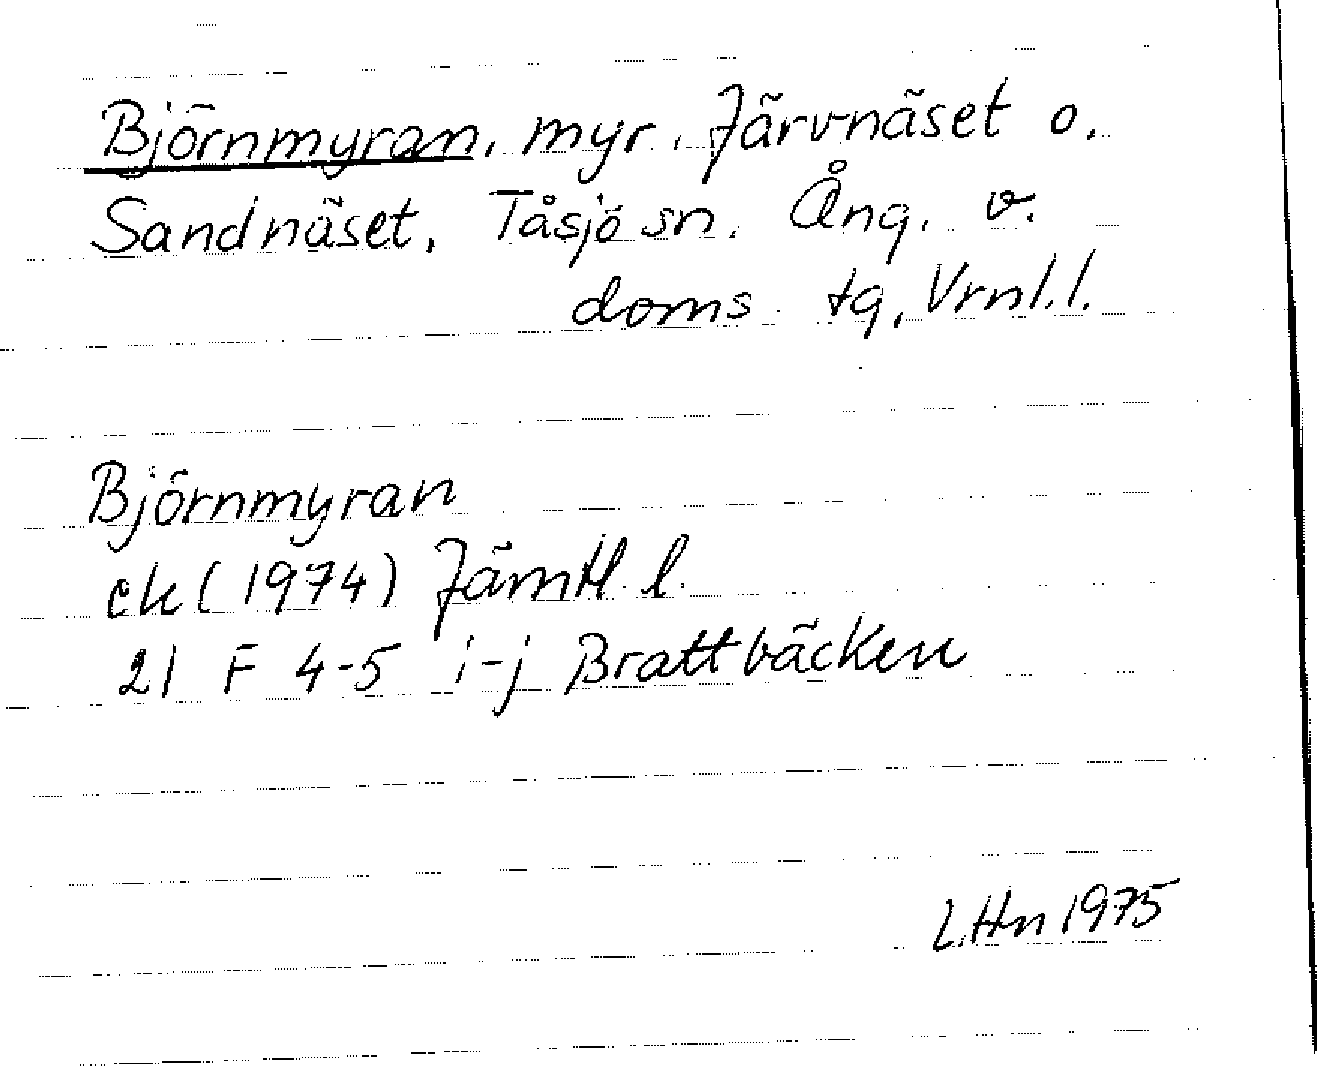 Björnmyran, myr, Järvnäset o.
Sandnäset, Tåsjö sn. Ång. v.
doms. tg, Vrnl. l.
Björnmyran
ek (1974) Jämtl. l.
21 F 4-5 i-j Brattbäcken
L.Hn 1975